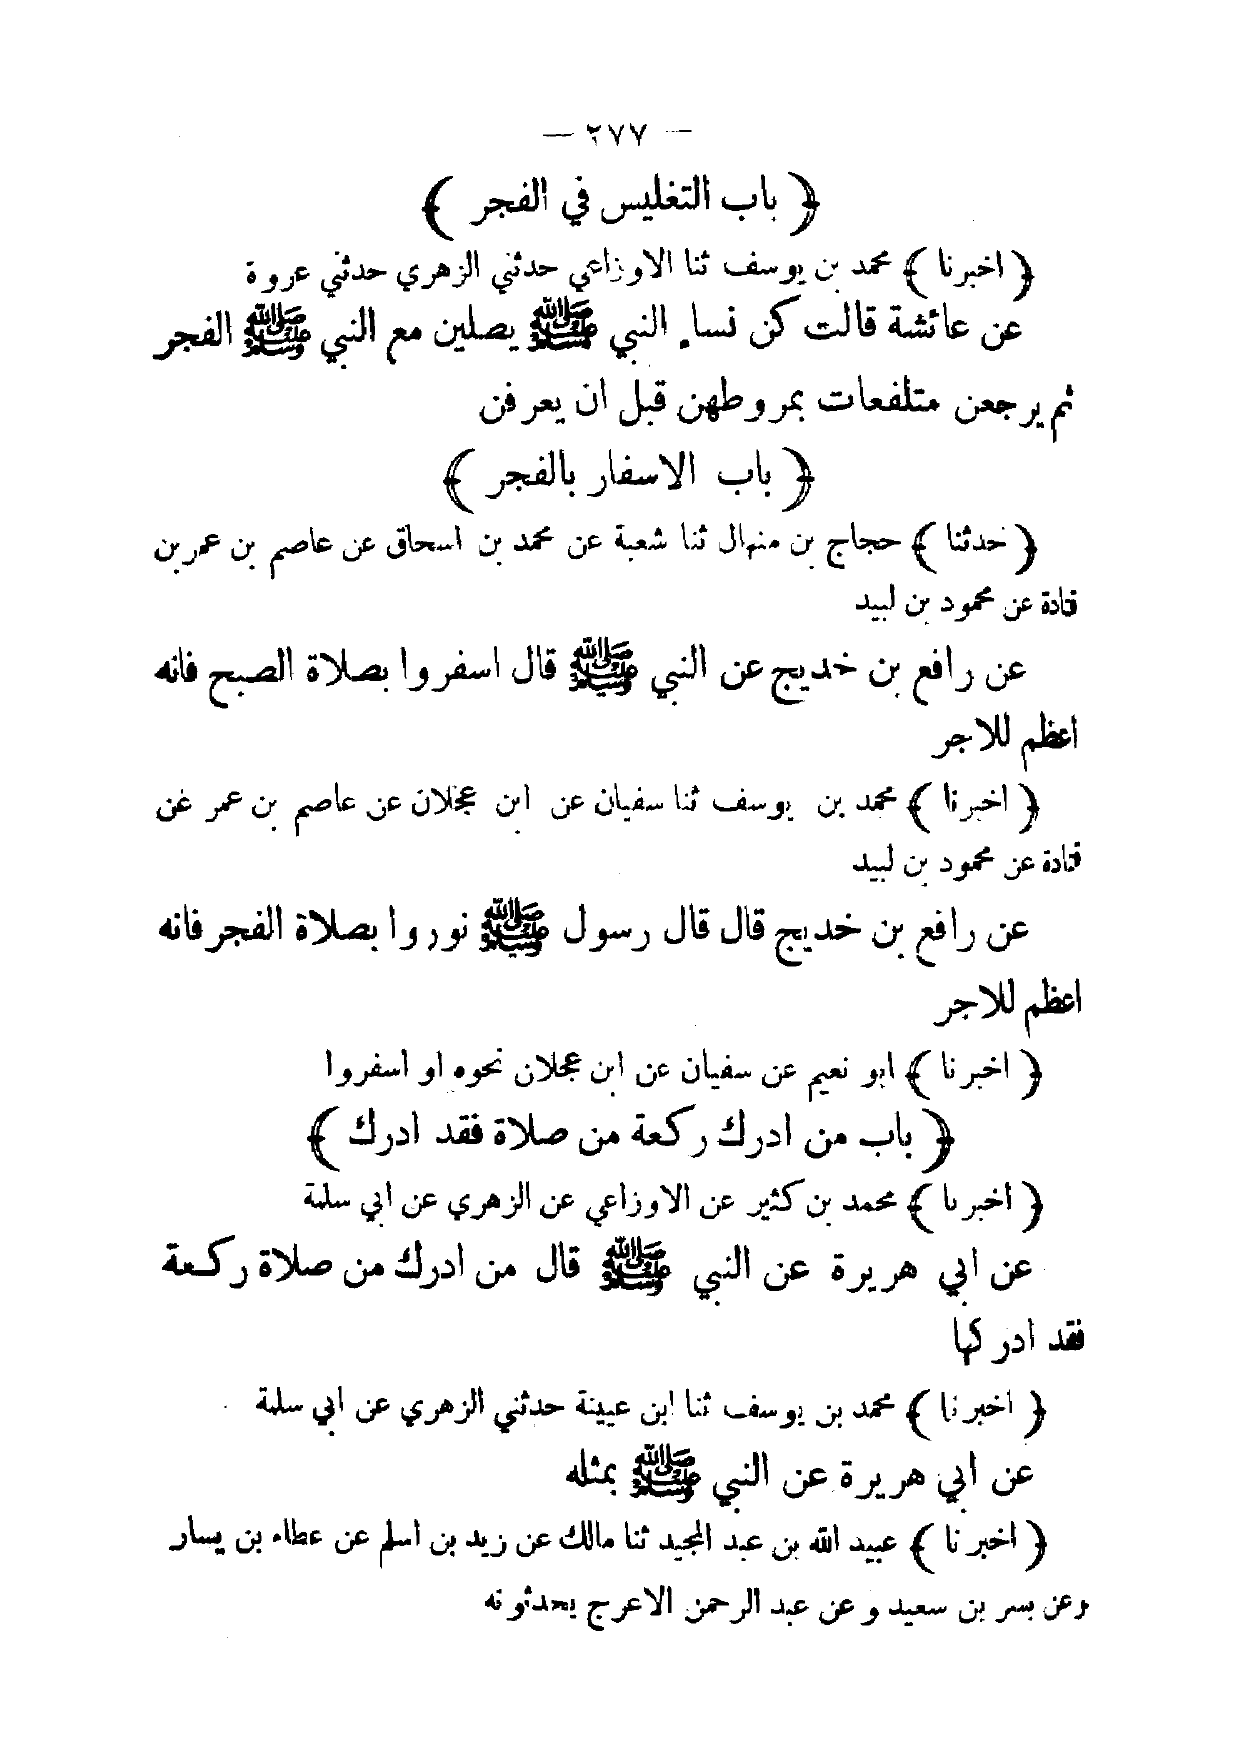 — ٢٧٧ —
﴿ باب التغليس في الفجر ﴾
﴿ اخبرنا ﴾ محمد بن يوسف ثنا الاوزاعي حدثني الزهري حدثني عروة
عن عائشة قالت كن نساء النبي ﷺ يصلين مع النبي ﷺ الفجر
ثم يرجعن متلفعات بمروطهن قبل ان يعرفن
﴿ باب الاسفار بالفجر ﴾
﴿ حدثنا ﴾ حجاج بن منهال ثنا شعبة عن محمد بن اسحاق عن عاصم بن عمر بن
قتادة عن محمود بن لبيد
عن رافع بن خديج عن النبي ﷺ قال اسفروا بصلاة الصبح فانه
اعظم للاجر
﴿ اخبرنا ﴾ محمد بن يوسف ثنا سفيان عن ابن عجلان عن عاصم بن عمر عن
قتادة عن محمود بن لبيد
عن رافع بن خديج قال قال رسول ﷺ نوروا بصلاة الفجر فانه
اعظم للاجر
﴿ اخبرنا ﴾ ابو نعيم عن سفيان عن ابن عجلان نحوه او اسفروا
﴿ باب من ادرك ركعة من صلاة فقد ادرك ﴾
﴿ اخبرنا ﴾ محمد بن كثير عن الاوزاعي عن الزهري عن ابي سلمة
عن ابي هريرة عن النبي ﷺ قال من ادرك من صلاة ركعة
فقد ادركها
﴿ اخبرنا ﴾ محمد بن يوسف ثنا ابن عيينة حدثني الزهري عن ابي سلمة
عن ابي هريرة عن النبي ﷺ بمثله
﴿ اخبرنا ﴾ عبيد الله بن عبد المجيد ثنا مالك عن زيد بن اسلم عن عطاء بن يسار
وعن بسر بن سعيد وعن عبد الرحمن الاعرج يحدثونه